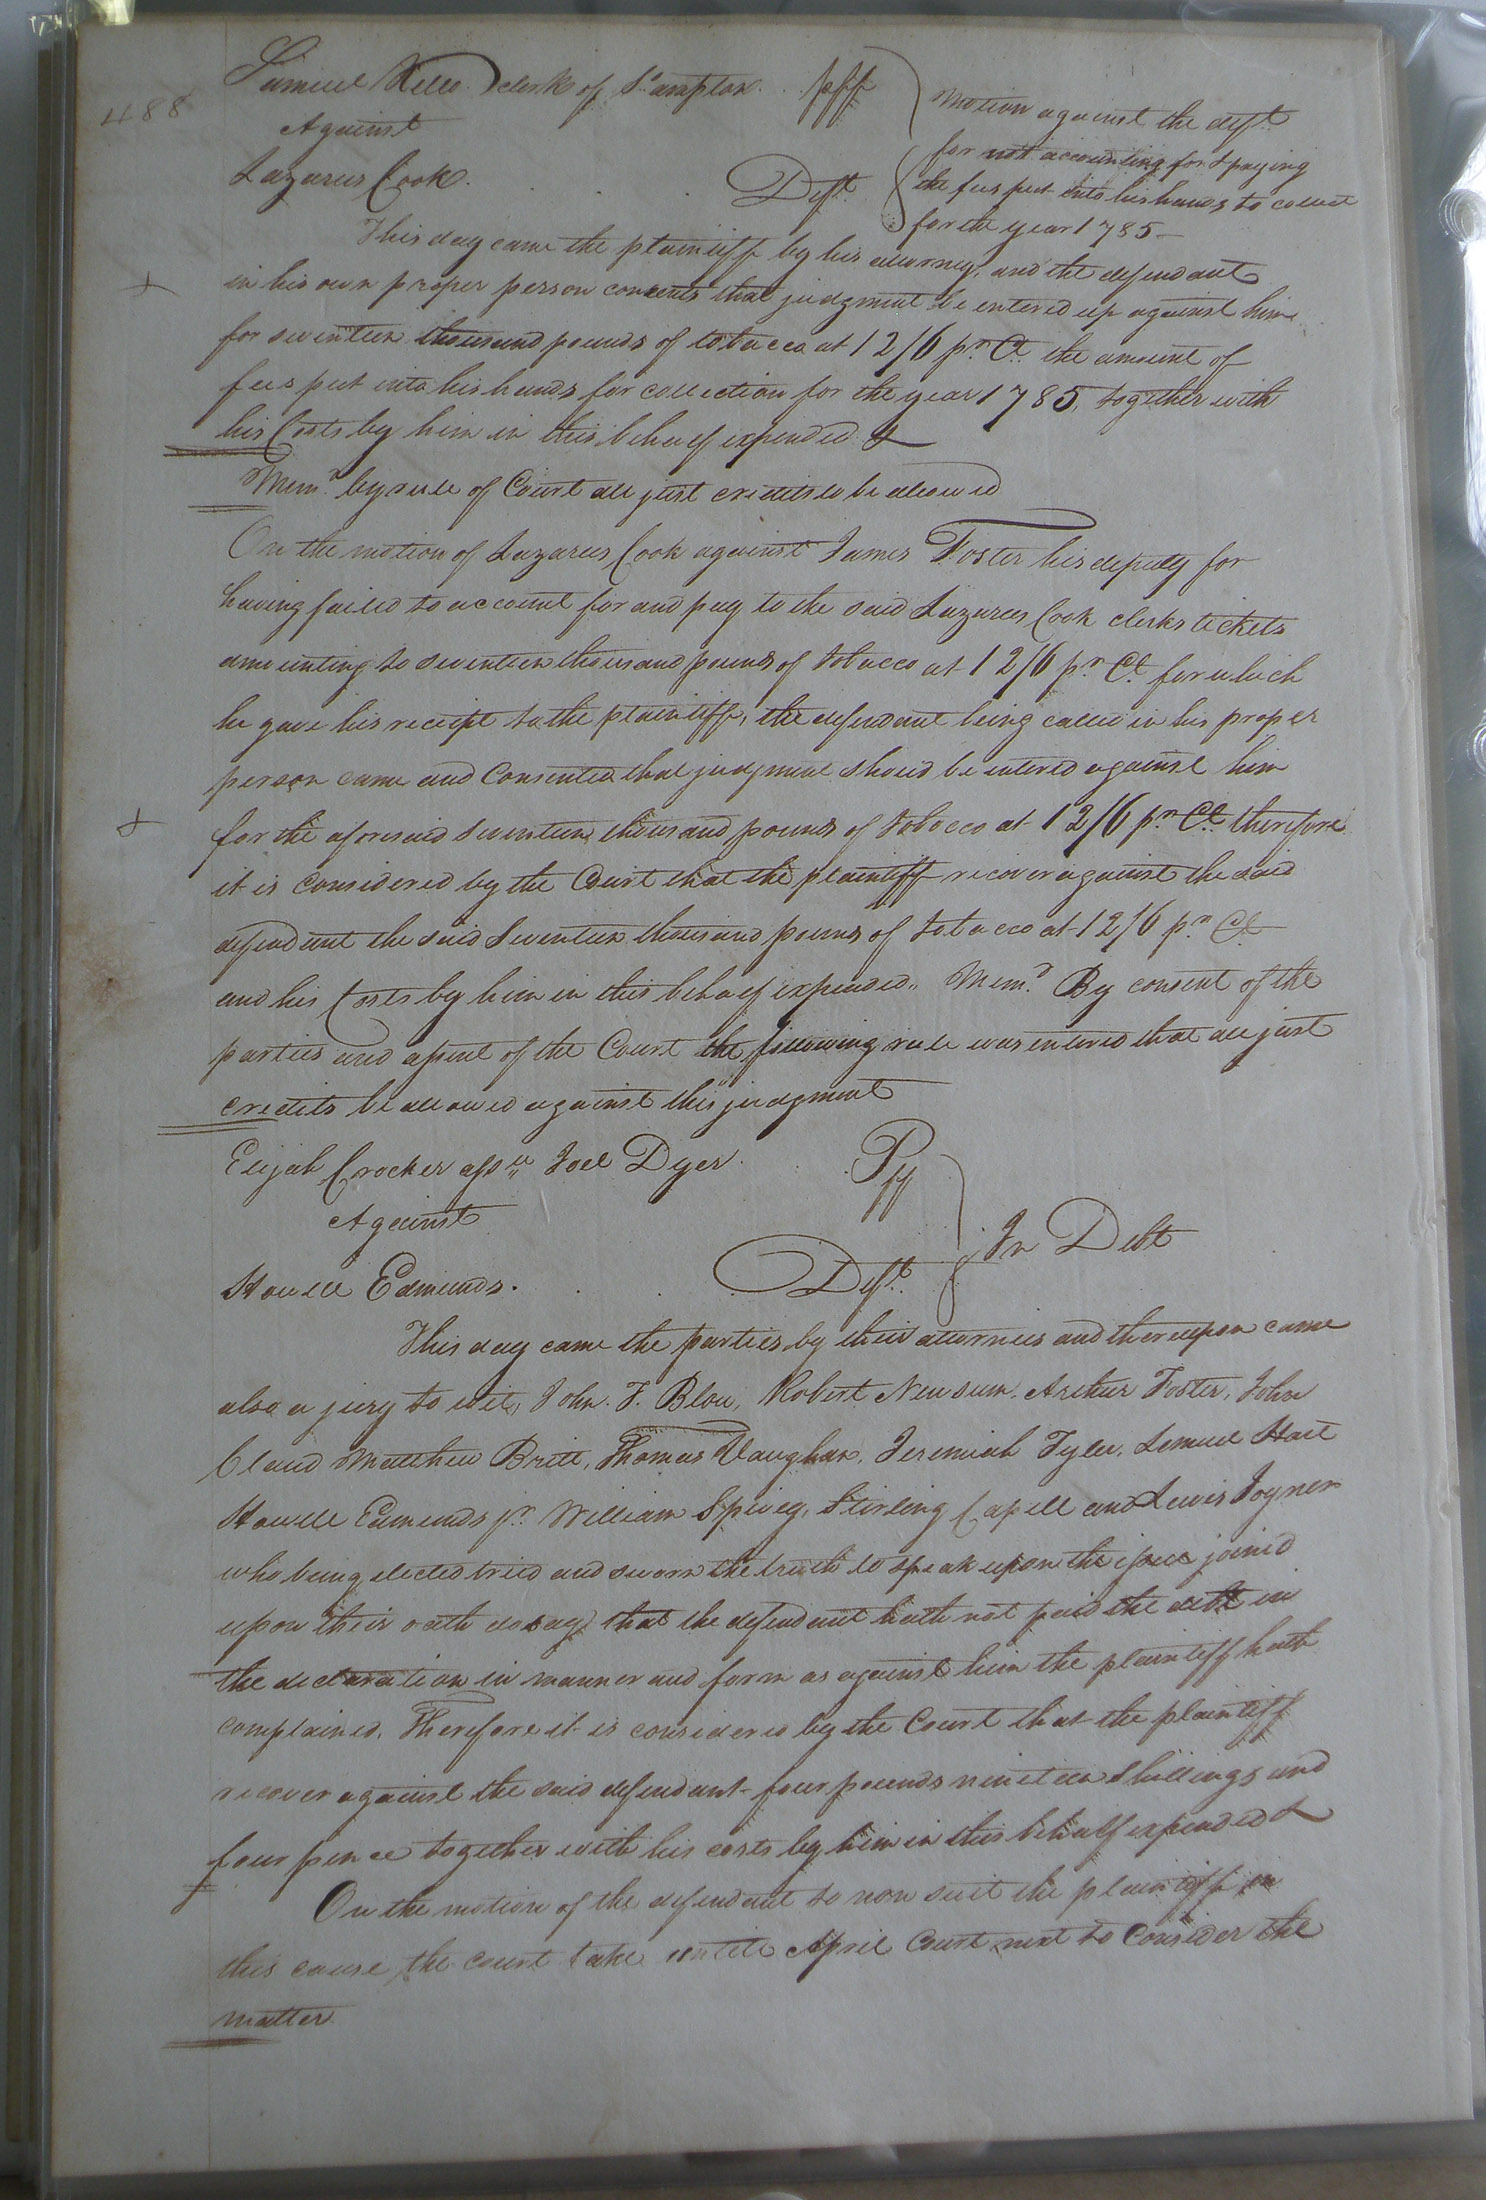 488
Samuel Kello clerk of S'ampton plff
Against
Lazarus Cook. Deft.
Motion against the deft.
for not accounting for & paying
the fees put into his hands to collect
for the year 1785
This day came the plaintiff by his attorney, and the defendant
in his own proper person consents that judgment be entered up against him
for seventeen thousand pounds of tobacco at 12/6 pr. Ct. the amount of
fees put into his hands for collection for the year 1785, together with
his Costs by him in this behalf expended &
Memd. by rule of Court all just credits to be allowed
On the motion of Lazarus Cook against James Foster his deputy for
having failed to account for and pay to the said Lazarus Cook clerks tickets
amounting to seventeen thousand pounds of tobacco at 12/6 pr. Ct. for which
he gave his receipt to the plaintiff, the defendant being called in his proper
person came and Consented that judgment should be entered against him
for the aforesaid seventeen thousand pounds of tobacco at 12/6 pr. Ct. therefore
it is Considered by the Court that the plaintiff recover against the said
defendant the said Seventeen thousand pounds of tobacco at 12/6 pr. Ct.
and his Costs by him in this behalf expended. Memd. By consent of the
parties and assent of the Court the following rule was entered that all just
credits be allowed against this judgment
Elijah Crocker assee Joel Dyer Plff
Against
Howell Edmunds. Deft.
In Debt
This day came the parties by their attornies and thereupon came
also a jury to wit, John. T. Blow, Robert Newsum, Arthur Foster, John
Bland Matthew Britt, Thomas Vaughan, Jeremiah Tyler, Lemuel Hart
Howell Edmunds jr. William Spivey, Stirling Capell and Lewis Joyner
who being elected tried and sworn the truth to speak upon the issue joined
upon their oath do say, that the defendant hath not paid the debt in
the declaration in manner and form as against him the plaintiff hath
complained. Therefore it is considered by the Court that the plaintiff
recover against the said defendant four pounds nineteen shillings and
four pence together with his costs by him in this behalf expended &
On the motion of the defendant to non suit the plaintiff in
this cause the court take until April Court next to Consider the
matter